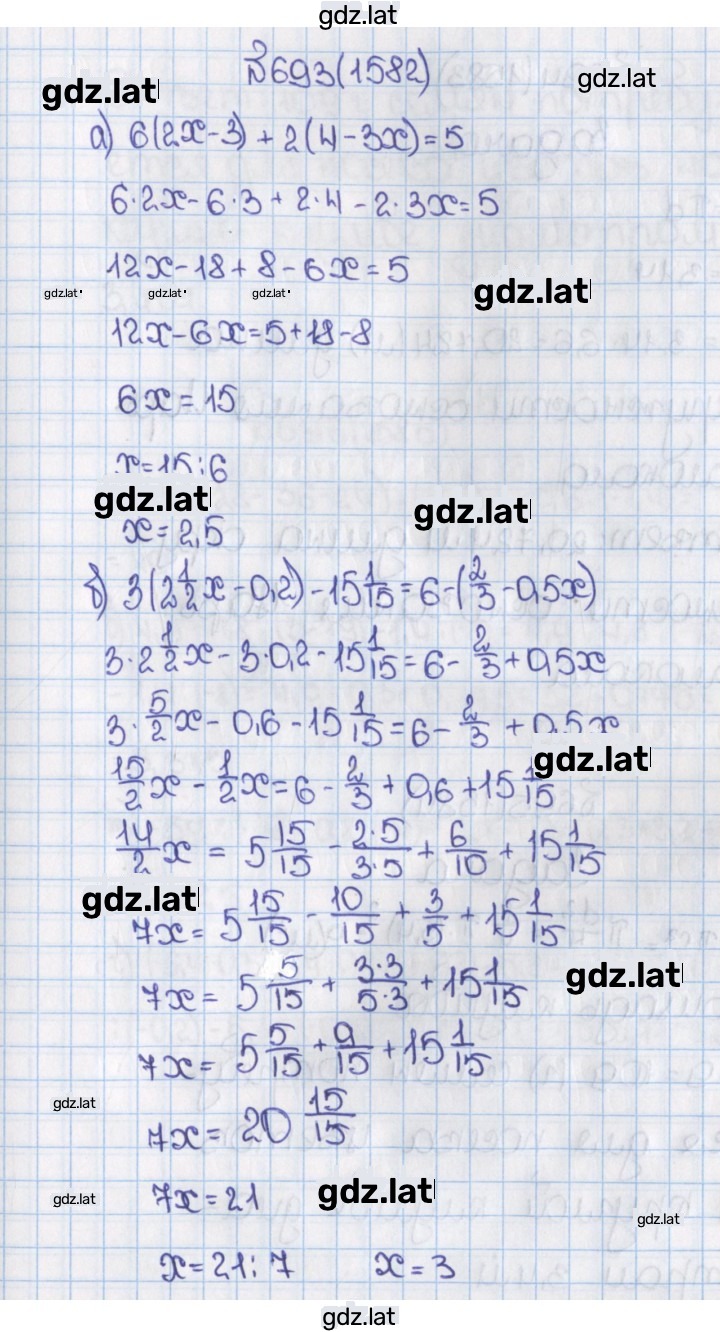 gdz.lat
№693(1582)
gdz.lat gdz.lat
а) 6(2x-3)+2(4-3x)=5
6·2x-6·3+2·4-2·3x=5
12x-18+8-6x=5
gdz.lat gdz.lat gdz.lat gdz.lat
12x-6x=5+18-8
6x=15
x=15:6
gdz.lat gdz.lat
x=2,5
б) 3(2 1/2 x-0,2)-15 1/15=6-(2/3-0,5x)
3·2 1/2 x-3·0,2-15 1/15=6-2/3+0,5x
3·5/2 x-0,6-15 1/15=6-2/3+0,5x
gdz.lat
15/2 x-1/2 x=6-2/3+0,6+15 1/15
14/2 x=5 15/15-2·5/3·5+6/10+15 1/15
gdz.lat
7x=5 15/15-10/15+3/5+15 1/15
gdz.lat
7x=5 5/15+3·3/5·3+15 1/15
7x=5 5/15+9/15+15 1/15
gdz.lat
7x=20 15/15
gdz.lat 7x=21 gdz.lat
gdz.lat
x=21:7 x=3
gdz.lat